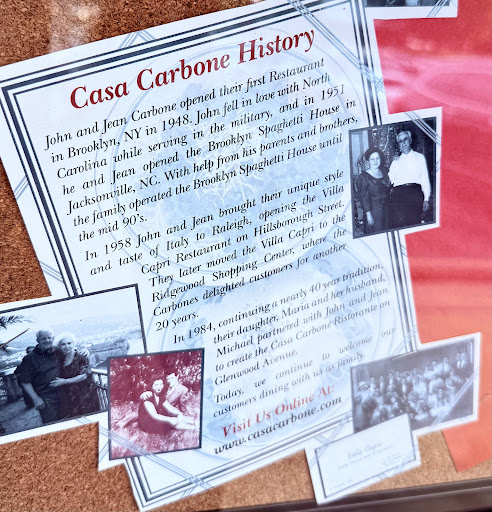 Casa Carbone History
John and Jean Carbone opened their first Restaurant
in Brooklyn, NY in 1948. John fell in love with North
Carolina while serving in the military, and in 1951
he and Jean opened the Brooklyn Spaghetti House in
Jacksonville, NC. With help from his parents and brothers,
the family operated the Brooklyn Spaghetti House until
the mid 90's.
In 1958 John and Jean brought their unique style
and taste of Italy to Raleigh, opening the Villa
Capri Restaurant on Hillsborough Street.
They later moved the Villa Capri to the
Ridgewood Shopping Center, where the
Carbones delighted customers for another
20 years.
In 1984, continuing a nearly 40 year tradition,
their daughter, Maria and her husband,
Michael partnered with John and Jean
to create the Casa Carbone Ristorante on
Glenwood Avenue.
Today, we continue to welcome our
customers dining with us as family.
Visit Us Online At:
www.casacarbone.com
Villa Capri